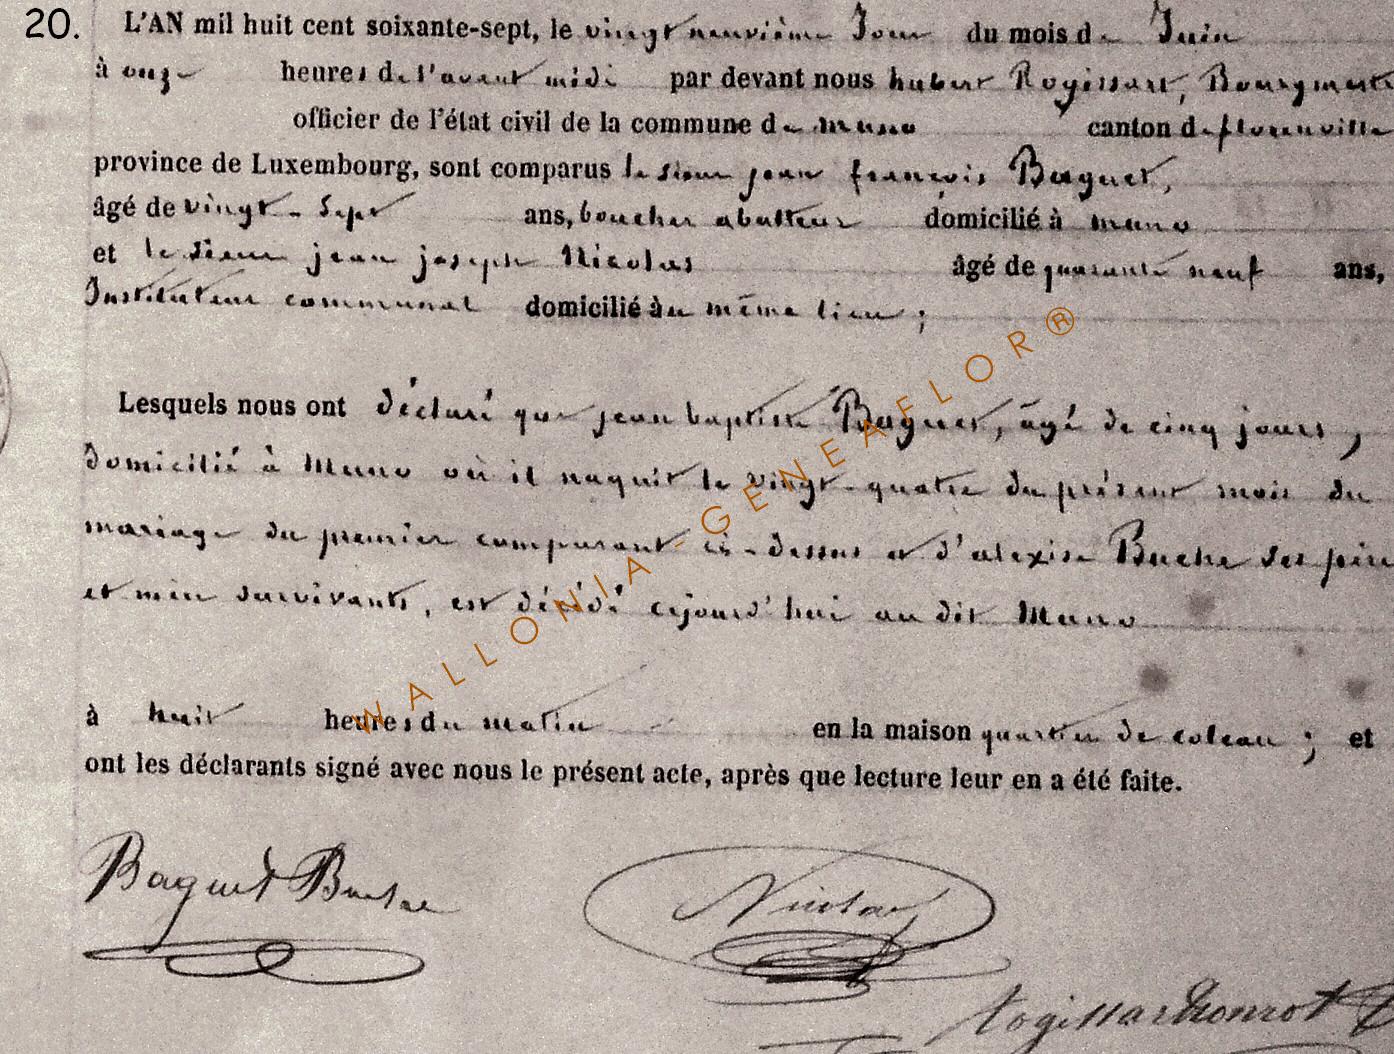 20.
L'AN mil huit cent soixante-sept, le vingt neuvième Jour du mois de Juin
à onze heures de l'avant midi par devant nous hubert Rogissart, Bourgmestre
officier de l'état civil de la commune de muno canton de florenville
province de Luxembourg, sont comparus le sieur jean françois Baguet,
âgé de vingt-sept ans, boucher abatteur domicilié à muno
et le sieur jean joseph Nicolas âgé de quarante neuf ans,
Instituteur communal domicilié au même lieu ;
Lesquels nous ont déclaré que jean baptiste Baguet, âgé de cinq jours,
domicilié à Muno où il naquit le vingt-quatre du présent mois du
mariage du premier comparant ci-dessus et d'alexise Buche ses père
et mère survivants, est décédé cejourd'hui au dit Muno
à huit heures du matin en la maison quartier de coleau ; et
ont les déclarants signé avec nous le présent acte, après que lecture leur en a été faite.
Baguet Buche
Nicolas
Rogissart
WALLONIA-GENEAFLOR®